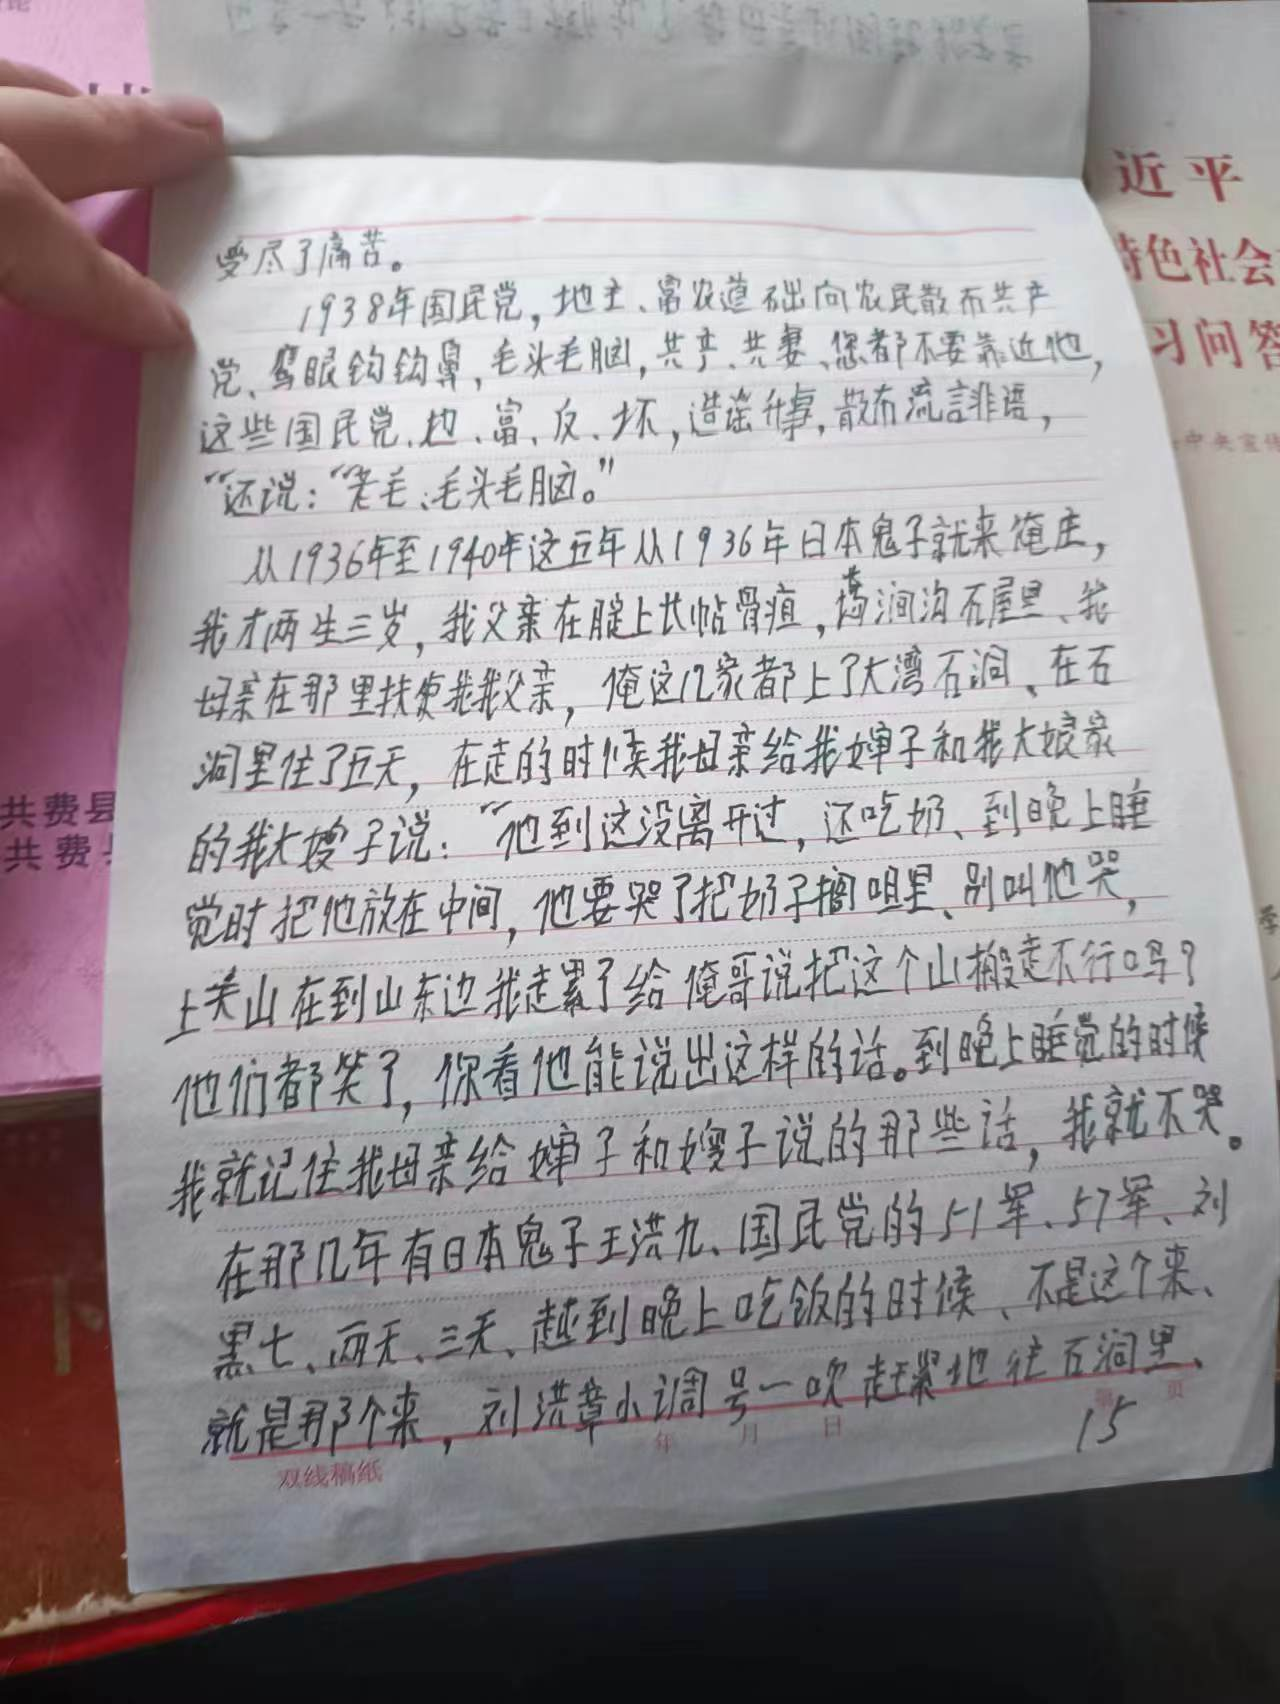 受尽了痛苦。
1938年国民党，地主、富农造础向农民散布共产
党、鹰眼钩钩鼻，毛头毛脑，共产、共妻、您都不要靠近他，
这些国民党、地、富、反、坏，造谣升事，散布流言非语，
“还说：“老毛、毛头毛脑。”
从1936年至1940年这五年从1936年日本鬼子就来俺庄，
我才两生三岁，我父亲在腚上长帖骨疽，涧沟石屋里、我
母亲在那里扶侍我我父亲，俺这几家都上了大湾石洞、在石
洞里住了五天，在走的时候我母亲给我婶子和我大娘家
的我大嫂子说：“他到这没离开过，还吃奶、到晚上睡
觉时把他放在中间，他要哭了把奶子搁咀里、别叫他哭，
上关山在到山东边我走累了给俺哥说把这个山搬走不行吗？
他们都笑了，你看他能说出这样的话。到晚上睡觉的时候
我就记住我母亲给婶子和嫂子说的那些话，我就不哭。
在那几年有日本鬼子王洪九、国民党的51军、57军、刘
黑七、两天、三天、越到晚上吃饭的时候、不是这个来、
就是那个来，刘洪章小调号一吹赶紧地往石洞里、
15
第 页
年 月 日
双线稿纸
近平
特色社会
习问答
中央宣传
共费县
共费